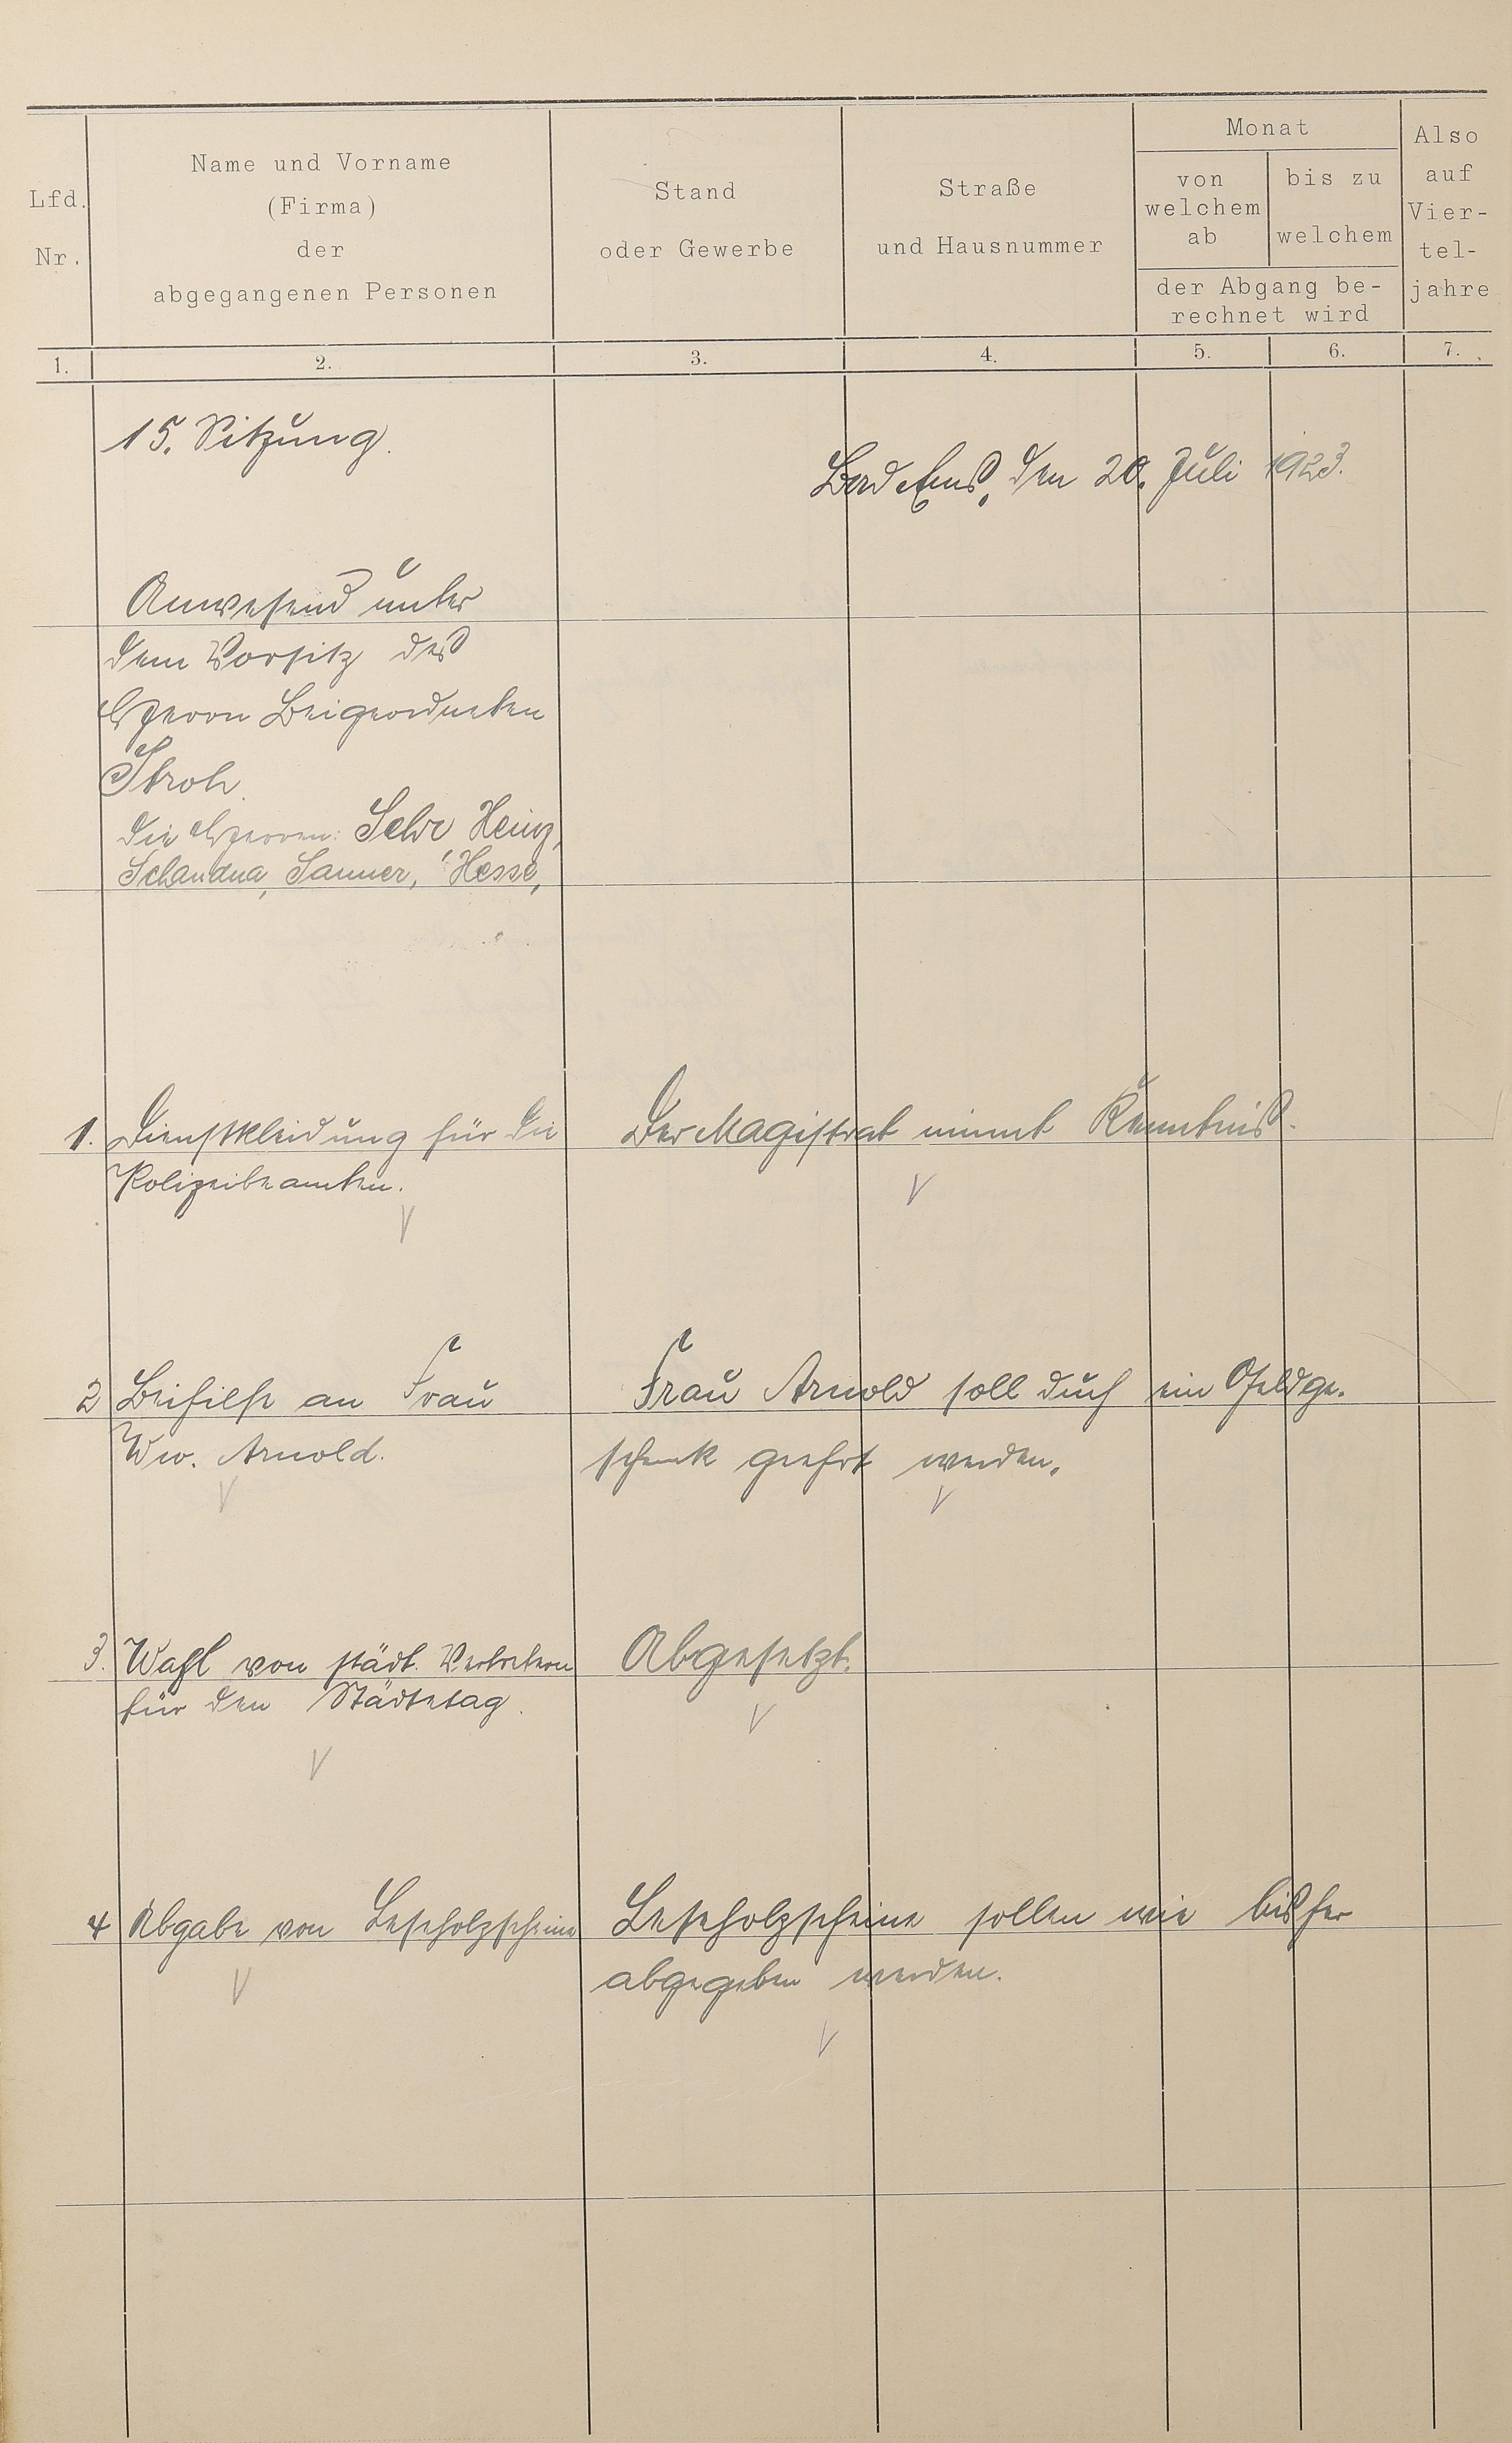 Lfd.
Nr.
Name und Vorname
(Firma)
der
abgegangenen Personen
Stand
oder Gewerbe
Straße
und Hausnummer
Monat
von
welchem
ab
bis zu
welchem
der Abgang be-
rechnet wird
Also
auf
Vier-
tel-
jahre
1. 2. 3. 4. 5. 6. 7.
15. Sitzung.
Bad Ems, den 20. Juli 1923.
Anwesend unter
dem Vorsitz des
Herrn Beigeordneten
Stroh.
die Herren: Sehr Heinz,
Schandua, Sanner, Hesse,
1. Dienstkleidung für die
Polizeibeamten.
Der Magistrat nimmt Kenntnis.
2 Beihilfe an Frau
Ww. Arnold.
Frau Arnold soll duch ein Geldge-
schenk geehrt werden.
3. Wahl von städt. Vertretern
für den Städtetag.
Abgesetzt.
4 Abgabe von Leseholzscheine
Leseholzscheine sollen wie bisher
abgegeben werden.